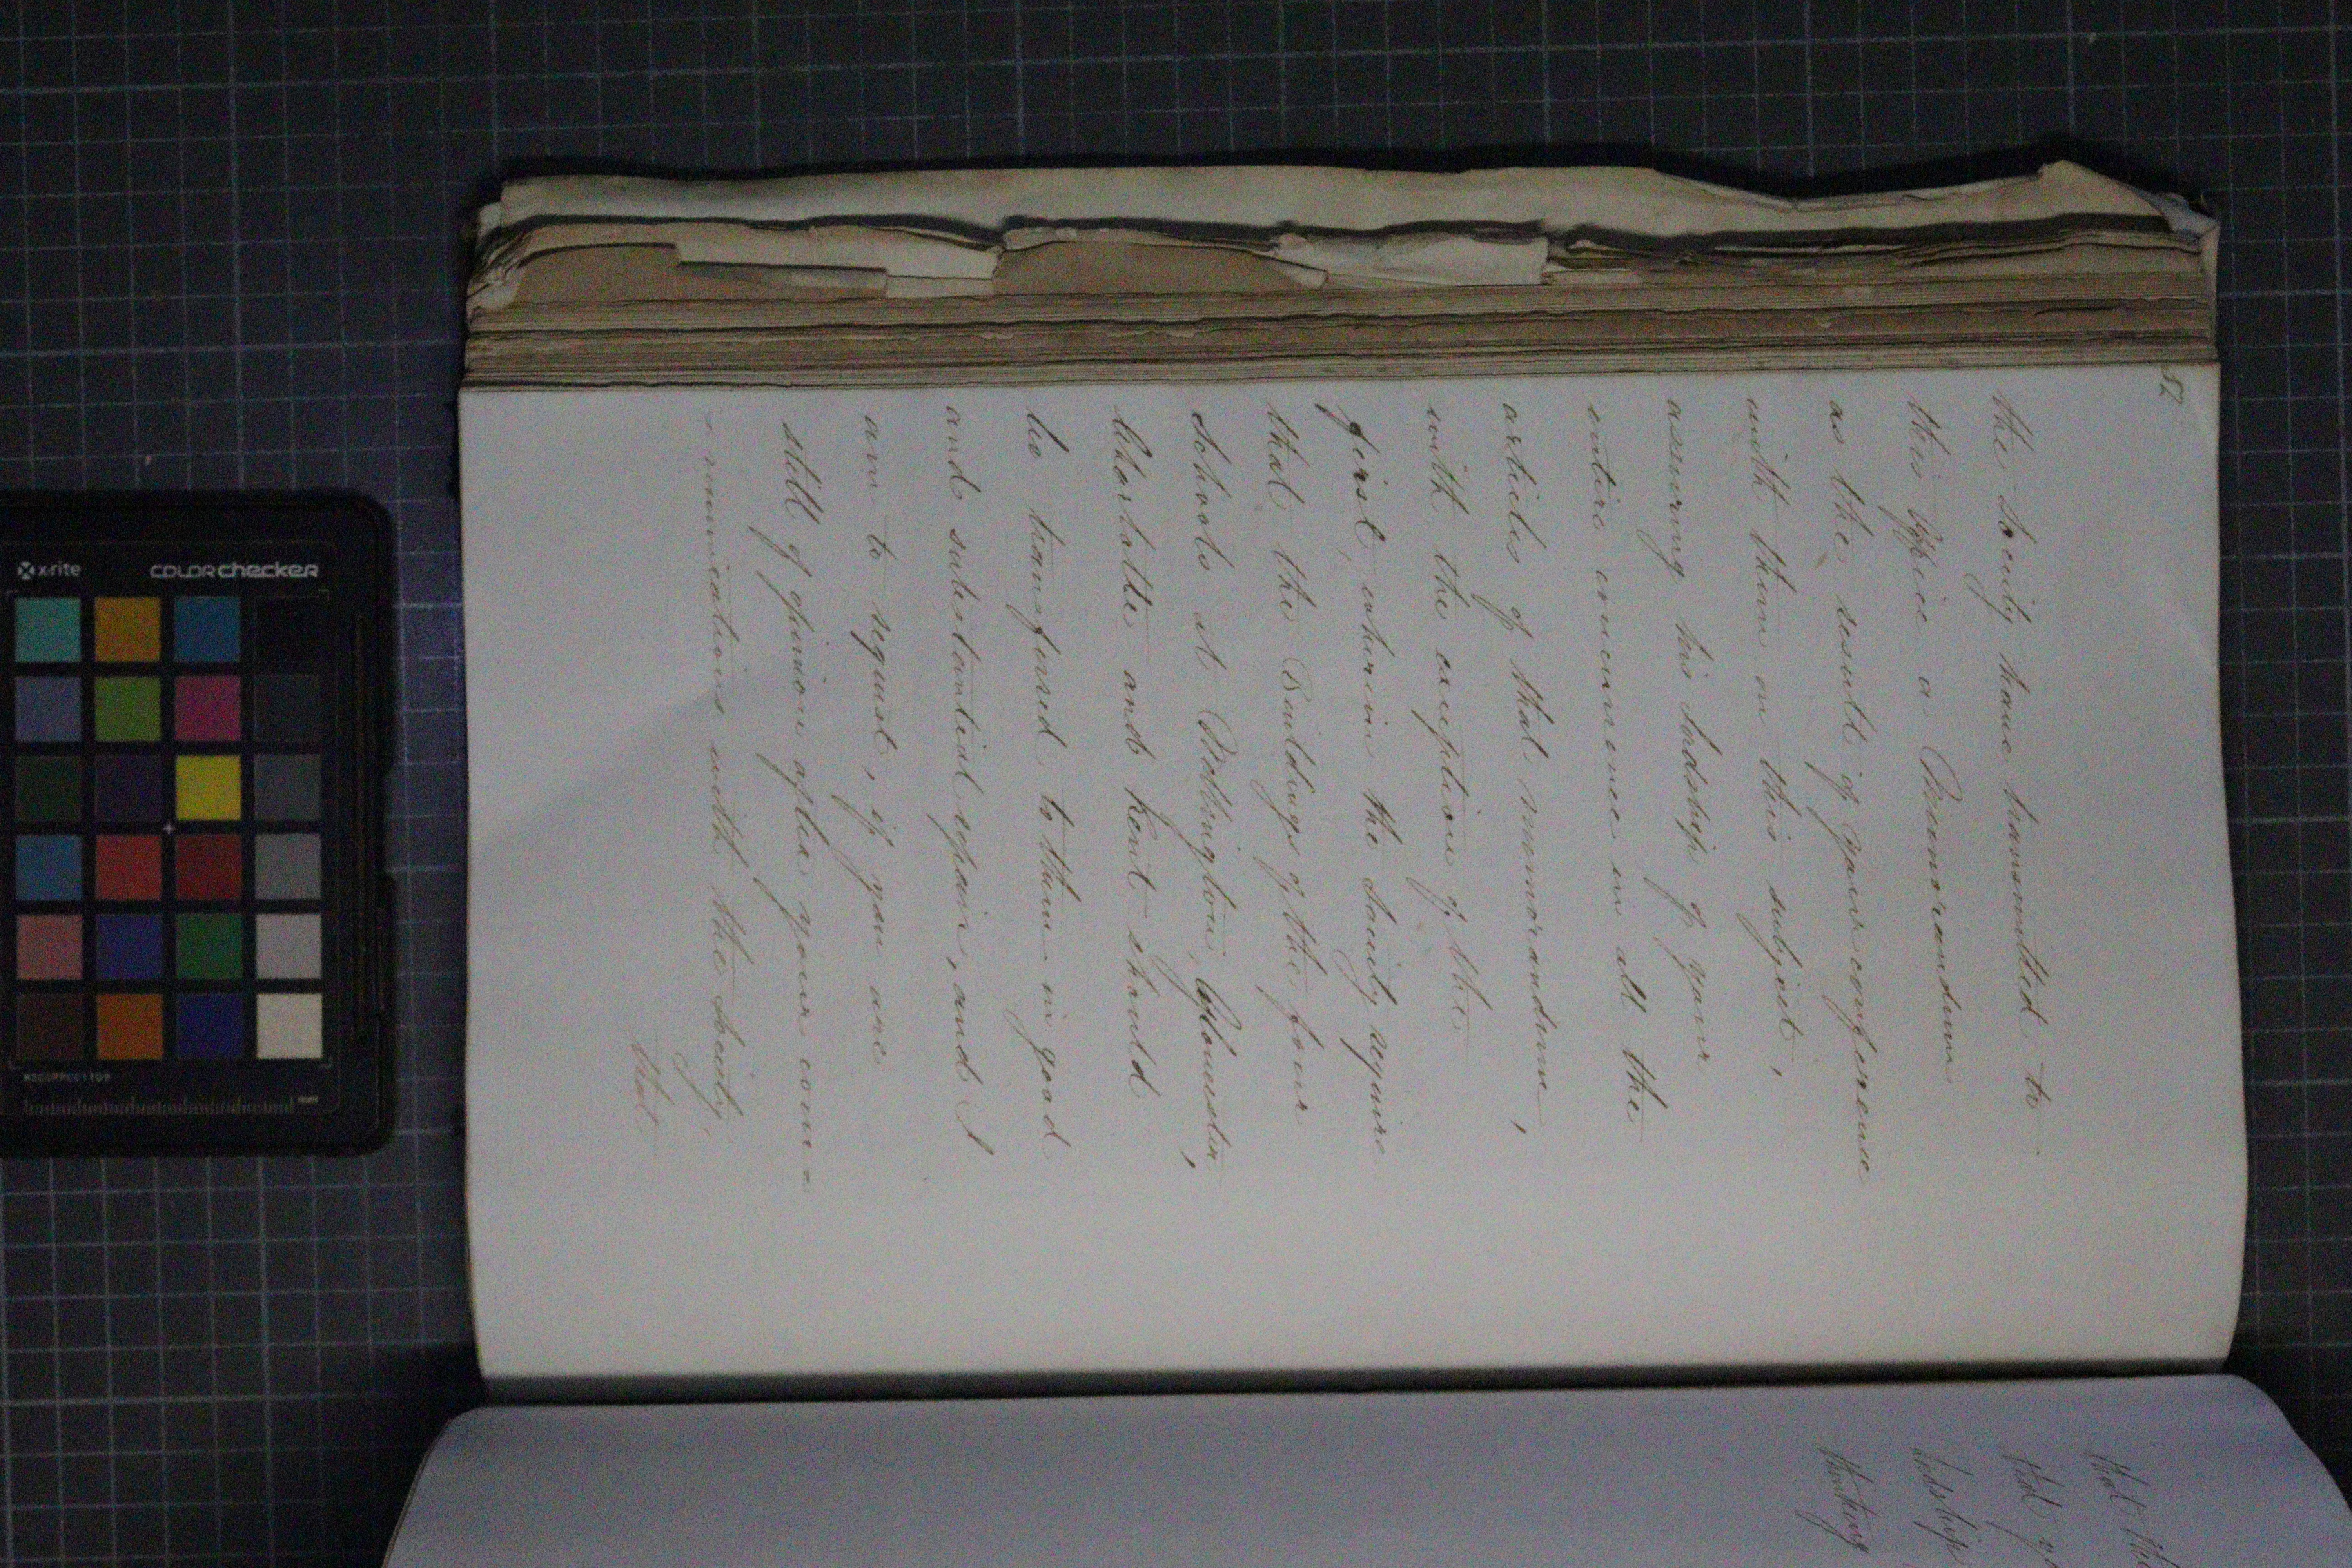 52
the Society have transmitted to
this Office a Memorandum
as the result of your conference
with them on this subject,
assuring his Lordship of your
entire concurrence in all the
articles of that memorandum,
with the exception of the
first, wherein the Society require
that the Buildings of the four
Schools at Wellington, Gloucester,
Charlotte and Kent should
be transferred to them in good
and substantial repair, and I
am to request, if you are
still of opinion after your com=
=munications with the Society,
that
that the
that of
Lordship
thinking
x-rite
COLORchecker